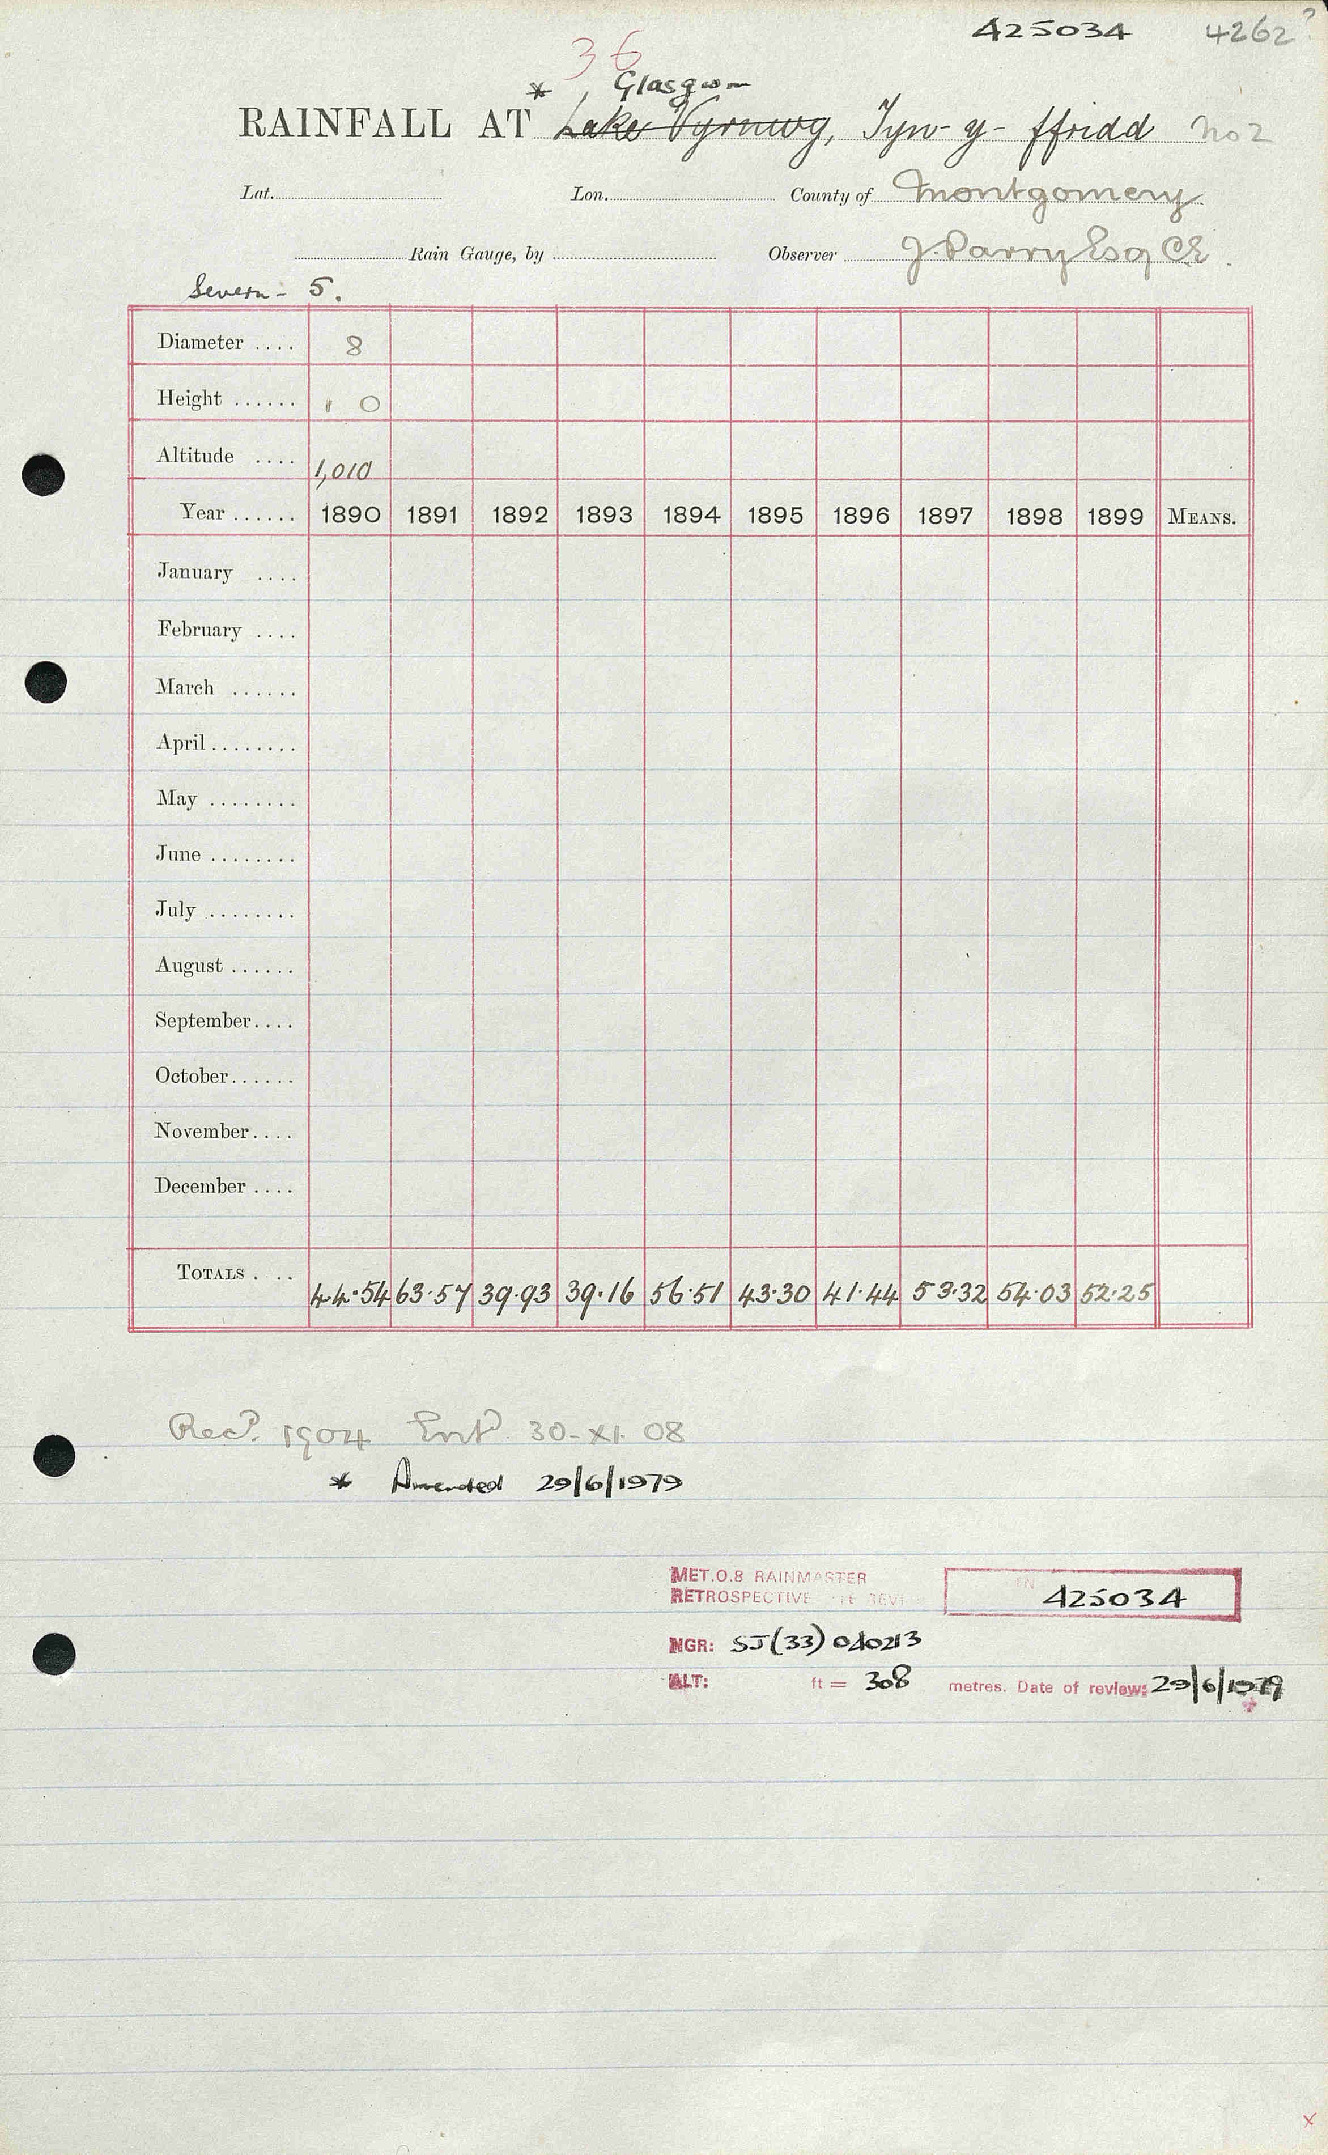 425034 4262?
36
* Glasgwm
RAINFALL AT Lake Vyrnwy, Tyn-y-ffridd No 2
Lat. Lon. County of Montgomery
Rain Gauge, by Observer J. Parry Esq CE.
Severn - 5.
Diameter .... 8
Height ...... 1 0
Altitude .... 1,010
Year ...... 1890 1891 1892 1893 1894 1895 1896 1897 1898 1899 MEANS.
January ....
February ....
March ......
April ........
May ........
June ........
July ........
August ......
September....
October......
November....
December ....
TOTALS . .. 44.54 63.57 39.93 39.16 56.51 43.30 41.44 53.32 54.03 52.25
Recd. 1904 Entd. 30-XI.08
* Amended 29/6/1979
MET.O.8 RAINMASTER
RETROSPECTIVE 425034
NGR: SJ(33)
ALT: ft = 308 metres. Date of review: 29/6/1979
x